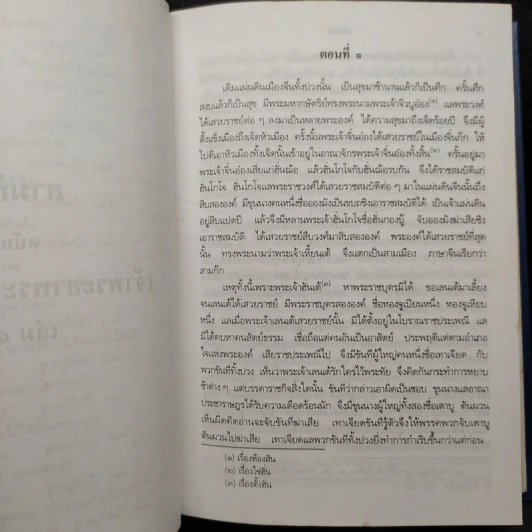 ตอนที่ ๑
เดิมแผ่นดินเมืองจีนทั้งปวงนั้น เป็นสุขมาช้านานแล้วก็เป็นศึก ครั้นศึก
สงบแล้วก็เป็นสุข มีพระมหากษัตริย์ทรงพระนามพระเจ้าจิวบูอ๋อง(๑) แลพระวงศ์
ได้เสวยราชย์ต่อ ๆ ลงมาเป็นหลายพระองค์ ได้ความสุขมาถึงเจ็ดร้อยปี จึงมีผู้
ตั้งแข็งเมืองถึงเจ็ดหัวเมือง ครั้งนั้นพระเจ้าจิ๋นอ๋องได้เสวยราชย์ในเมืองจิ๋นก๊ก ให้
ไปตีเอาหัวเมืองทั้งเจ็ดนั้นเข้าอยู่ในอาณาจักรพระเจ้าจิ๋นอ๋องทั้งสิ้น(๒) ครั้นอยู่มา
พระเจ้าจิ๋นอ๋องเสียแก่ฮั่นฬ้อ แล้วฮั่นโกโจกับฮั่นฬ้อรบกัน จึงได้ราชสมบัติแก่
ฮั่นโกโจ ฮั่นโกโจแลพระราชวงศ์ได้เสวยราชสมบัติต่อ ๆ มาในแผ่นดินจีนนั้นถึง
สิบสององค์ มีขุนนางคนหนึ่งชื่ออองมังเป็นขบถชิงเอาราชสมบัติได้ เป็นเจ้าแผ่นดิน
อยู่สิบแปดปี แล้วจึงมีหลานพระเจ้าฮั่นโกโจชื่อฮั่นกองบู๊ จับอองมังฆ่าเสียชิง
เอาราชสมบัติ ได้เสวยราชย์สืบวงศ์มาสิบสององค์ พระองค์ได้เสวยราชย์ที่สุด
นั้น ทรงพระนามว่าพระเจ้าเหี้ยนเต้ จึงแตกเป็นสามเมือง ภาษาจีนเรียกว่า
สามก๊ก
เหตุทั้งนี้เพราะพระเจ้าฮั่นเต้(๓) หาพระราชบุตรมิได้ ขอเลนเต้มาเลี้ยง
จนเลนเต้ได้เสวยราชย์ มีพระราชบุตรสององค์ ชื่อหองจูเปียนหนึ่ง หองจูเหียบ
หนึ่ง แลเมื่อพระเจ้าเลนเต้เสวยราชย์นั้น มิได้ตั้งอยู่ในโบราณราชประเพณี แล
มิได้คบหาคนสัตย์ธรรม เชื่อถือแต่คนอันเป็นอาสัตย์ ประพฤติแต่ตามอำเภอ
ใจแห่งพระองค์ เสียราชประเพณีไป จึงมีขันทีผู้ใหญ่คนหนึ่งชื่อเทาเจียด กับ
พวกขันทีทั้งปวง เห็นว่าพระเจ้าเลนเต้รักใคร่ไว้พระทัย จึงคิดกันกระทำการหยาบ
ช้าต่างๆ แต่บรรดาราชกิจสิ่งใดนั้น ขันทีว่ากล่าวเอาผิดเป็นชอบ ขุนนางแลอาณา
ประชาราษฎรได้รับความเดือดร้อนนัก จึงมีขุนนางผู้ใหญ่ทั้งสองชื่อเตาบู ตันผวน
เห็นผิดคิดอ่านจะจับขันทีฆ่าเสีย เทาเจียดขันทีรู้ตัวจึงให้พรรคพวกจับเตาบู
ตันผวนไปฆ่าเสีย เทาเจียดแลพวกขันทีทั้งปวงยิ่งทำการกำเริบขึ้นกว่าแต่ก่อน
(๑) เรื่องห้องสิน
(๒) เรื่องไซฮั่น
(๓) เรื่องตั้งฮั่น